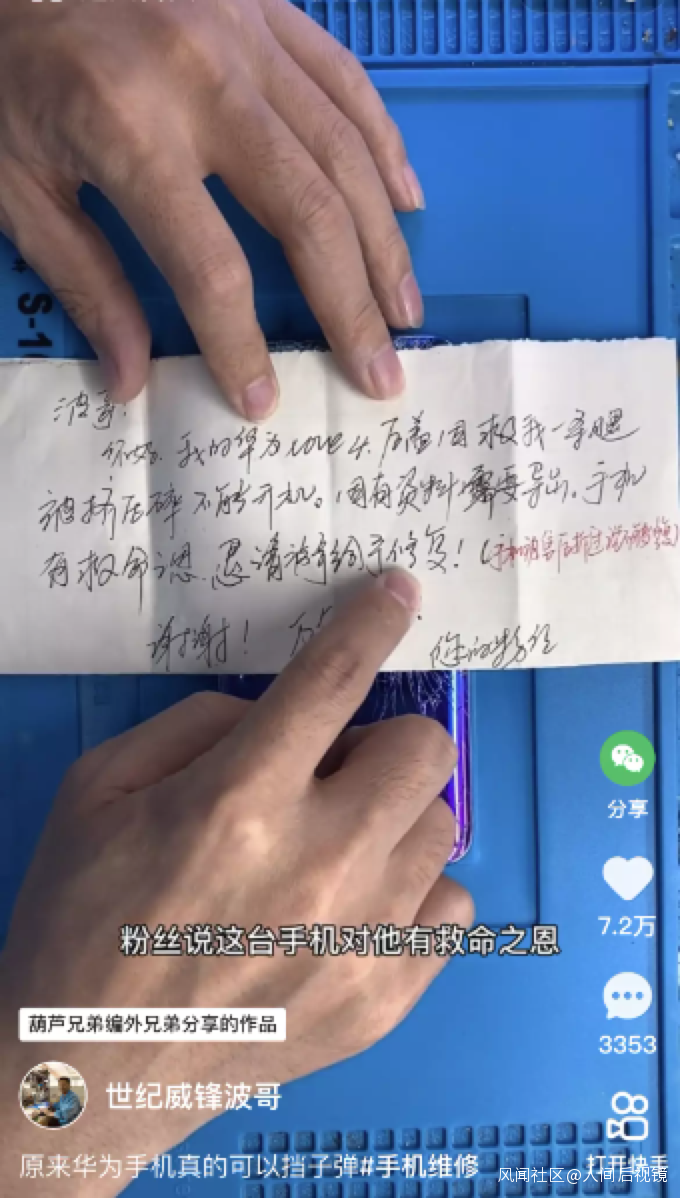 S-1
波哥:
你好. 我的华为nova 4. 后盖因救我一条腿
被挤压碎不能开机。因有资料需要导出. 手机
有救命之恩. 恳请波哥给予修复! (手机被售后拆过说不能修复)
谢谢!
您的粉丝
分享
7.2万
粉丝说这台手机对他有救命之恩
3353
葫芦兄弟编外兄弟分享的作品
世纪威锋波哥
原来华为手机真的可以挡子弹#手机维修
打开快手
风闻社区@人间后视镜